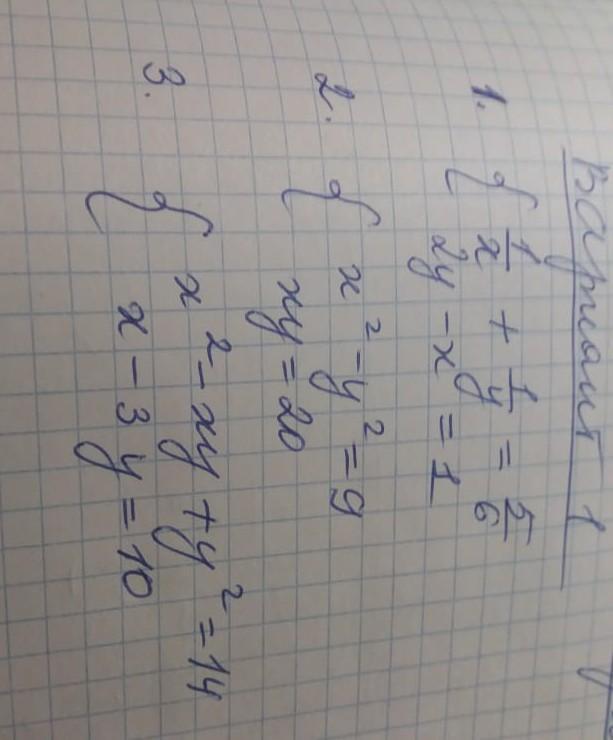 Вариант 1
1. { 1/x + 1/y = 5/6
2y - x = 1
2. { x² - y² = 9
xy = 20
3. { x² - xy + y² = 14
x - 3y = 10